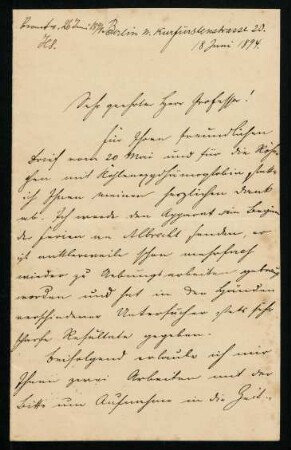 Beantw. 26 Juni 1894. Berlin W. Kurfürstenstrasse 20.
18 Juni 1894.
Sehr geehrter Herr Professor!
Für Ihren freundlichen
Brief vom 20 Mai und für die Röhr-
chen mit Kohlenoxydhämoglobin statte
ich Ihnen meinen herzlichen Dank
ab. Ich werde den Apparat bei Beginn
der Ferien an Albrecht senden, er
ist mittlerweile schon mehrfach
wieder zu Uebungsarbeiten gebraucht
worden und hat in den Händen
verschiedener Untersucher stets sehr
scharfe Resultate gegeben.
Beifolgend erlaube ich mir
Ihnen zwei Arbeiten mit der
Bitte um Aufnahme in die Zeit-